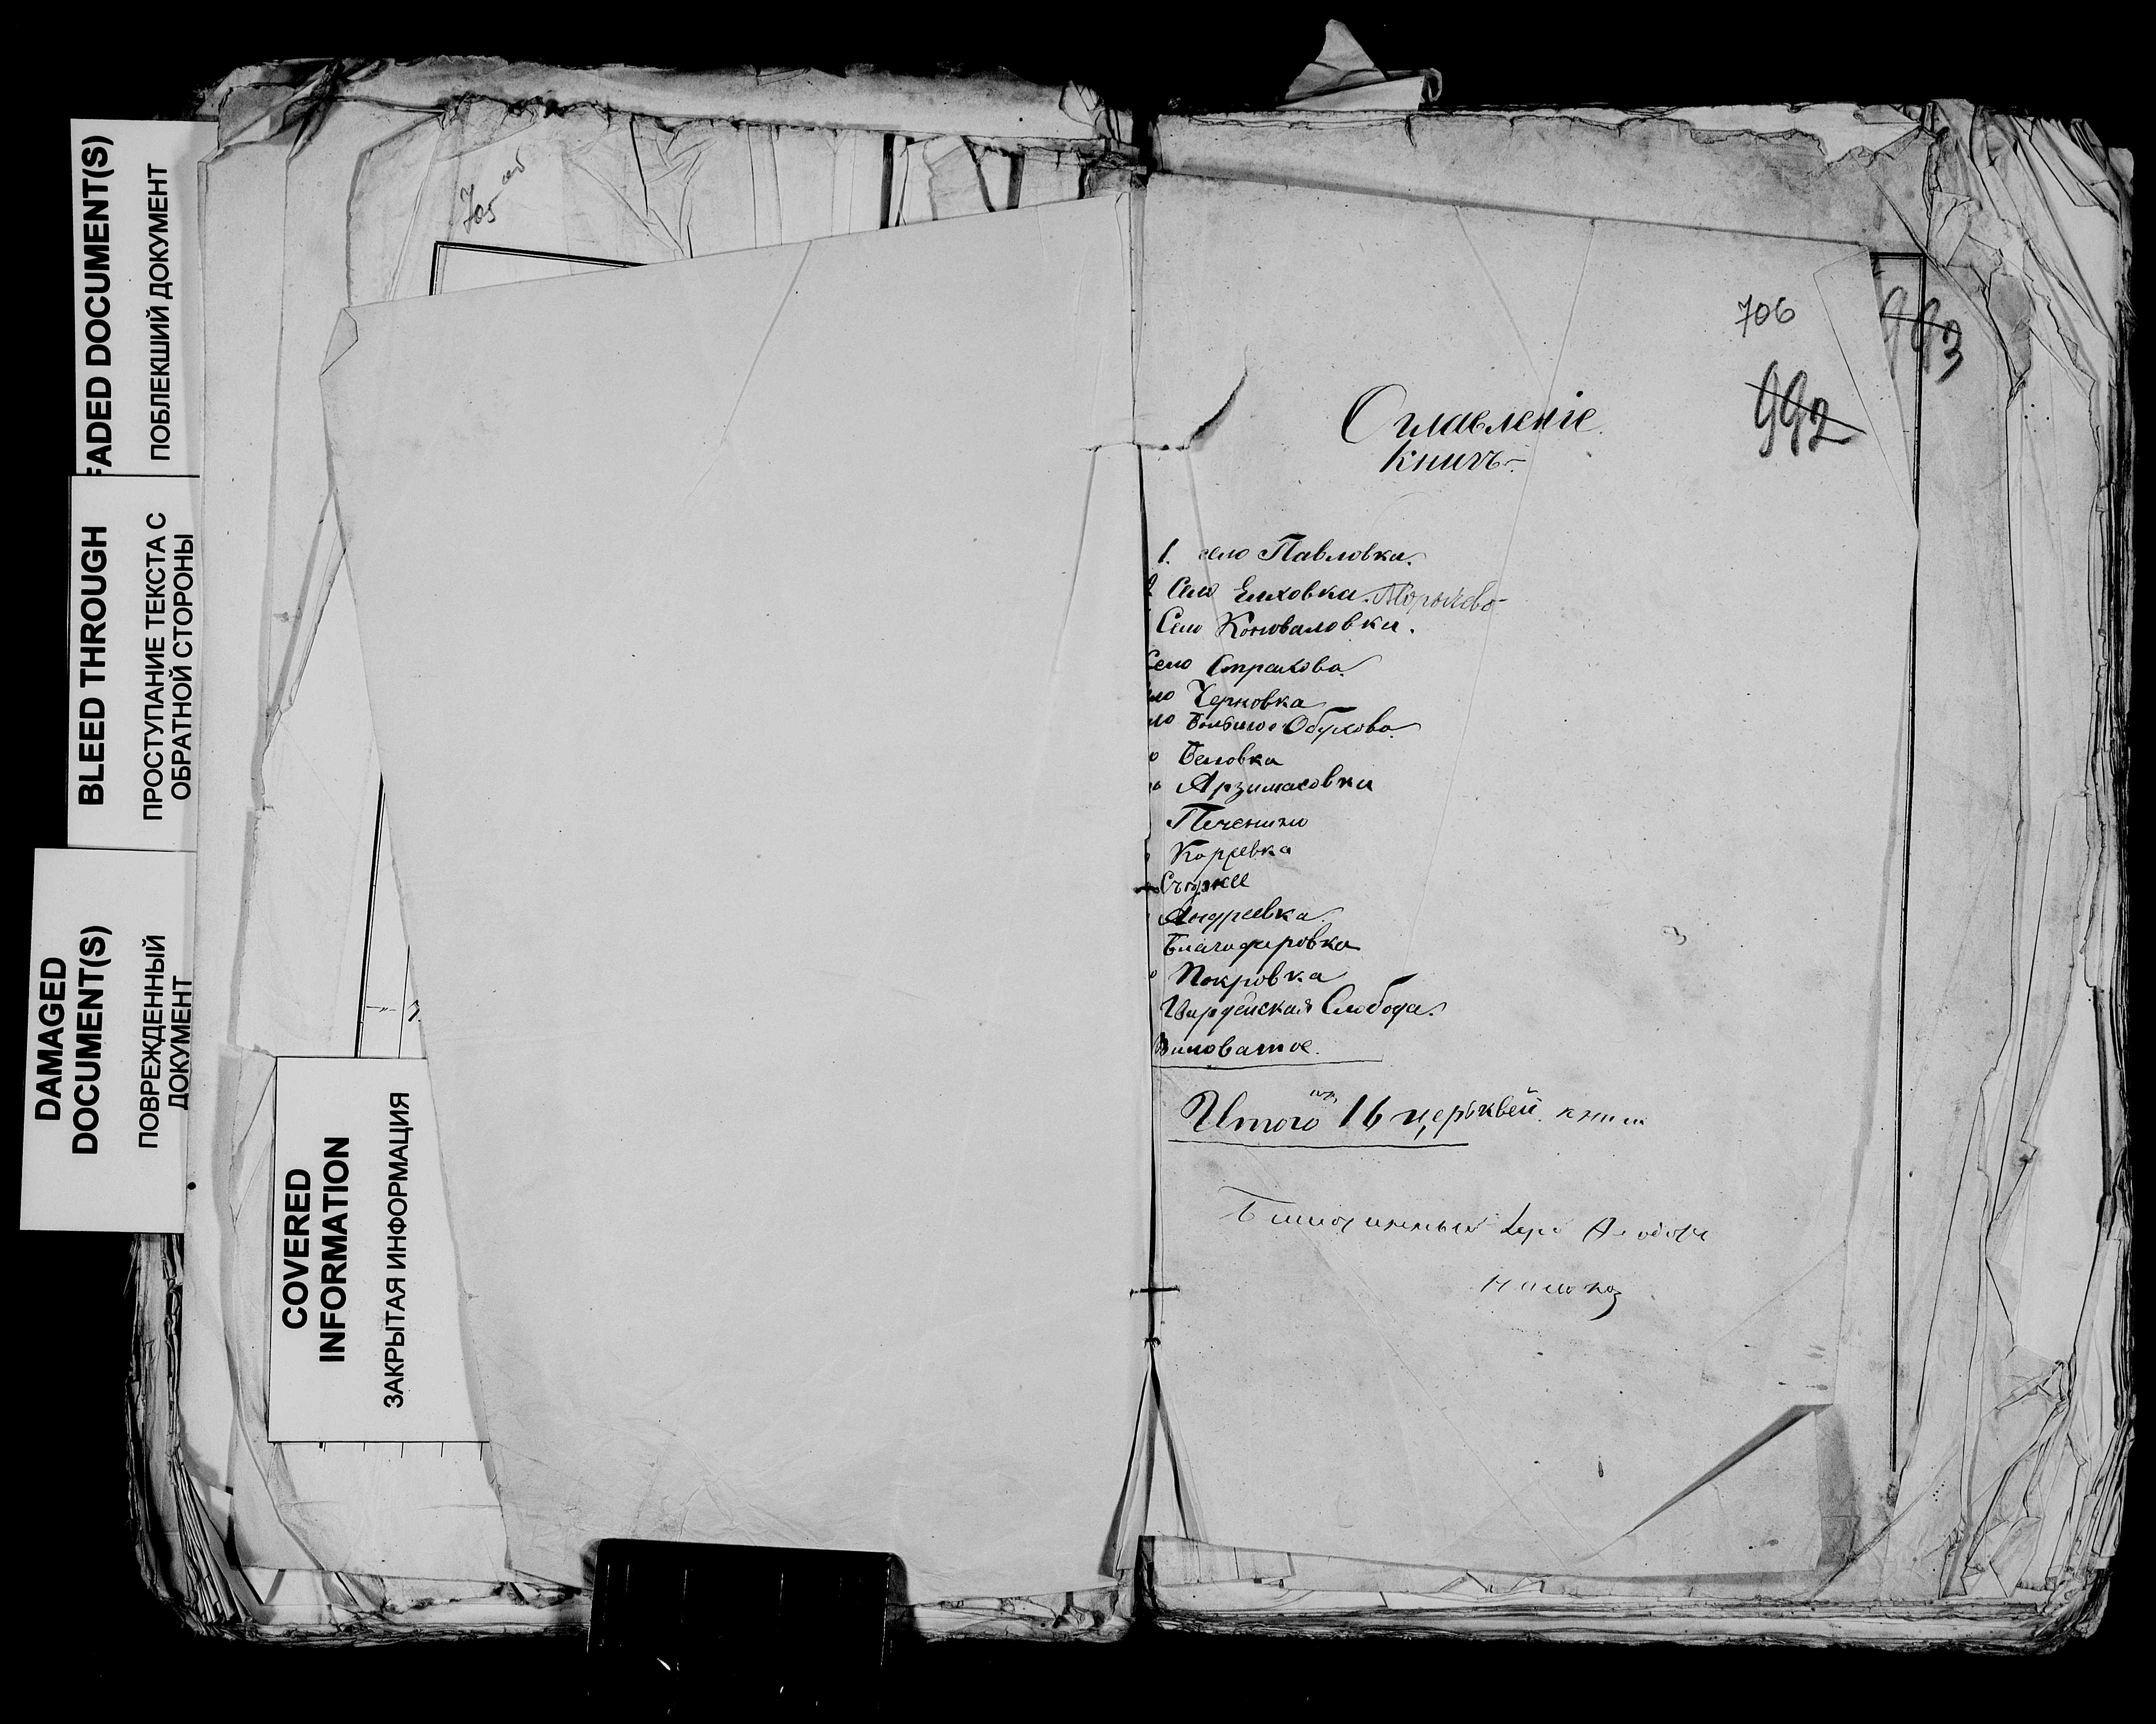 FADED DOCUMENT(S)
ПОБЛЕКШИЙ ДОКУМЕНТ
BLEED THROUGH
ПРОСТУПАНИЕ ТЕКСТА С
ОБРАТНОЙ СТОРОНЫ
DAMAGED
DOCUMENT(S)
ПОВРЕЖДЕННЫЙ
ДОКУМЕНТ
COVERED
INFORMATION
ЗАКРЫТАЯ ИНФОРМАЦИЯ
705 об
706
993
992
Оглавленіе
книгъ
1. село Павловка.
Село Елховка.
Село Коноваловка.
Село Страхова.
ло Черновка
ло Большое Обухово.
о Беловка
о Арзамасовка
Печенино
Андреевка.
Благодаровка
о Покровка
Гвардейская Слобода.
Виловатое.
Итого 16 церквей книгъ
Благочинный